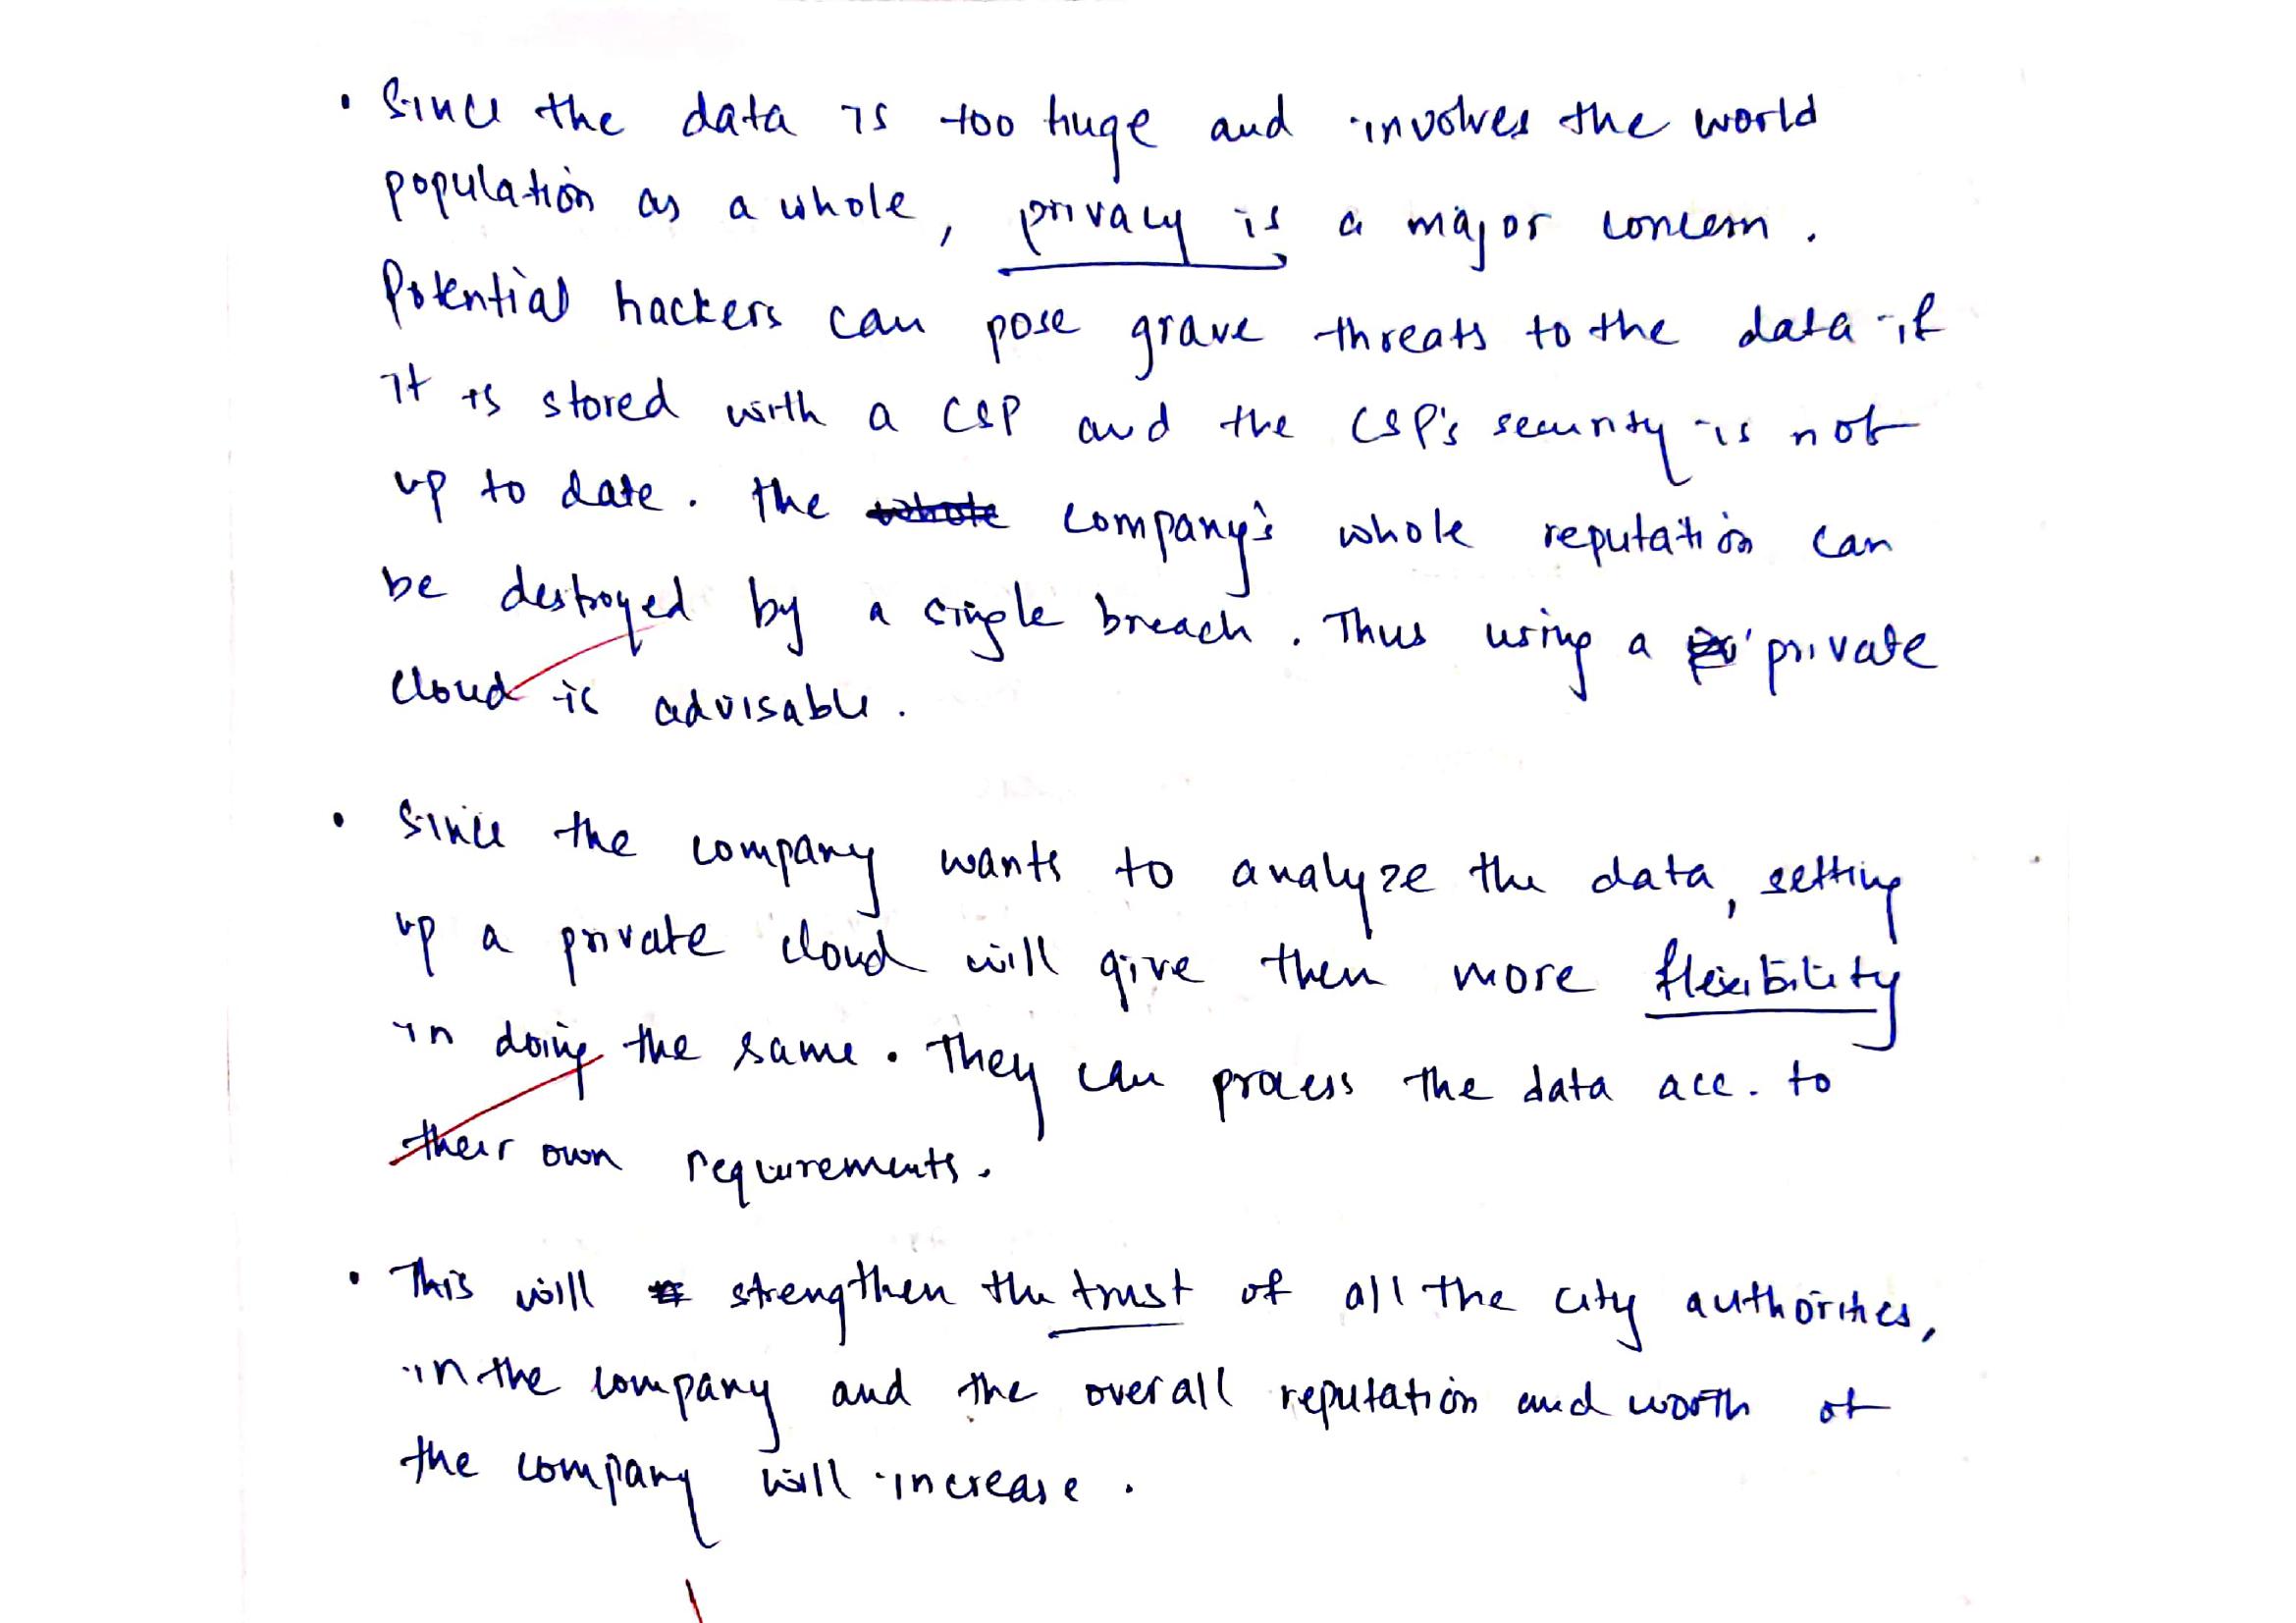 • Since the data is too huge and involves the world
population as a whole, privacy is a major concern.
Potential hackers can pose grave threats to the data if
it is stored with a CSP and the CSP's security is not
up to date. the whole company's whole reputation can
be destroyed by a single breach. Thus using a private
cloud is advisable.
• Since the company wants to analyze the data, setting
up a private cloud will give them more flexibility
in doing the same. They can process the data acc. to
their own requirements.
• This will strengthen the trust of all the city authorities,
in the company and the overall reputation and worth of
the company will increase.